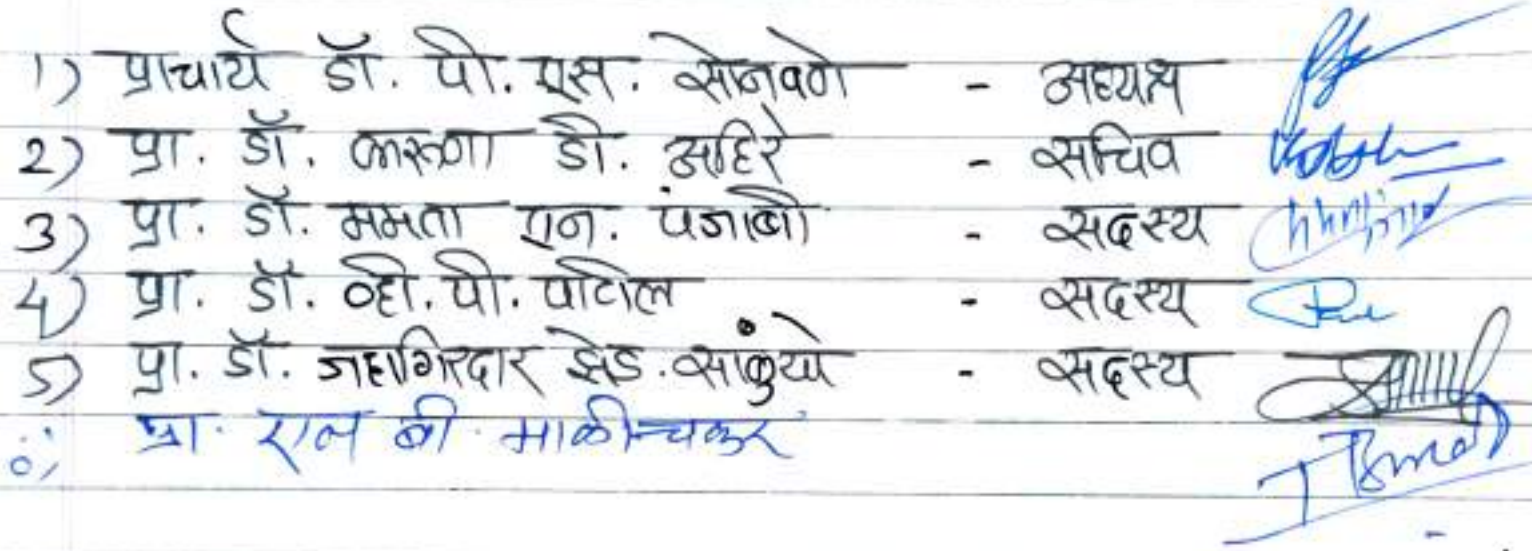 1) प्राचार्य डॉ. पी. एस. सोनवणे - अध्यक्ष
2) प्रा. डॉ. करुणा डी. अहिरे - सचिव
3) प्रा. डॉ. ममता एन. पंजाबी - सदस्य
4) प्रा. डॉ. व्ही. पी. पाटील - सदस्य
5) प्रा. डॉ. जहागिरदार झेड. - सदस्य
प्रा. एल बी.